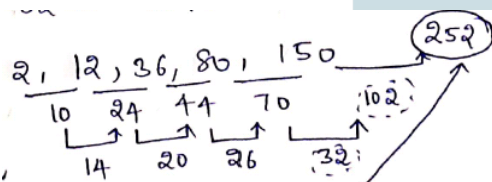 252
2, 12, 36, 80, 150
10 24 44 70 102
14 20 26 32